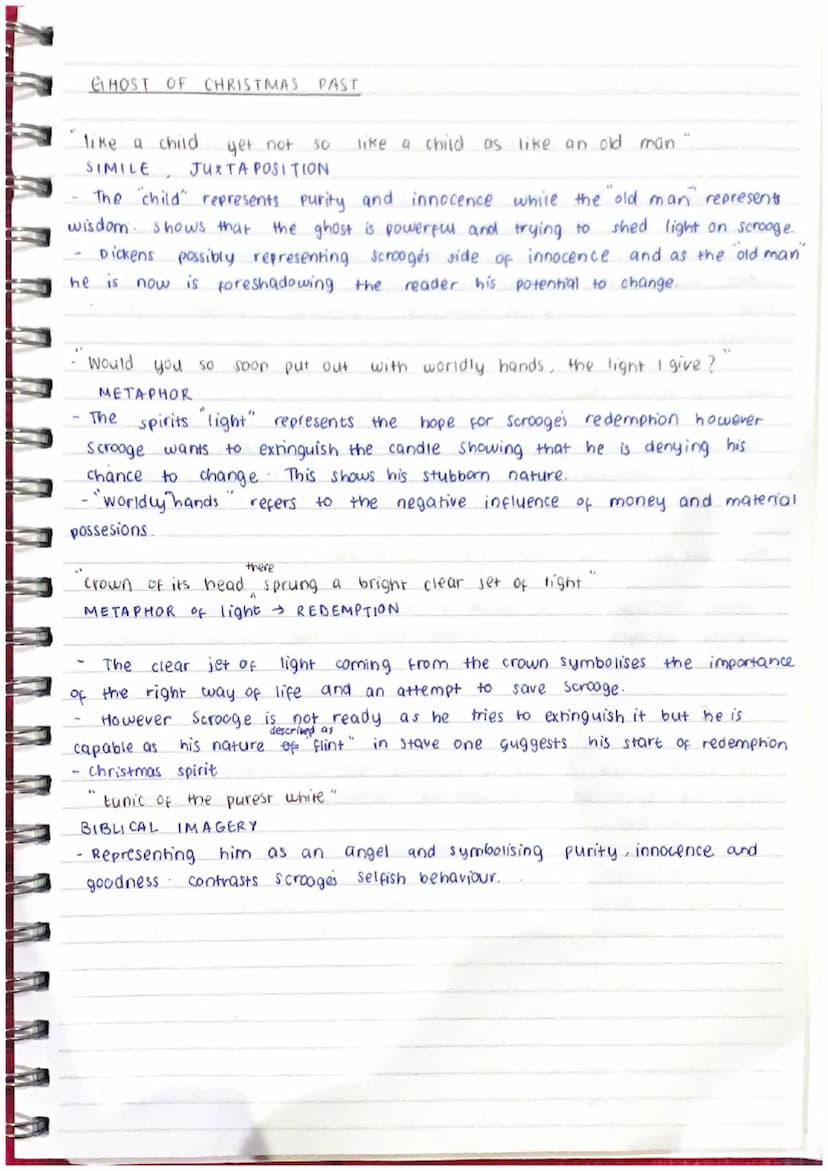 GHOST OF CHRISTMAS PAST
"like a child yet not so like a child as like an old man"
SIMILE, JUXTAPOSITION
- The "child" represents purity and innocence while the "old man" represents
wisdom. shows that the ghost is powerful and trying to shed light on scrooge.
- Dickens possibly representing scrooge's side of innocence and as the "old man"
he is now is foreshadowing the reader his potential to change.
- "Would you so soon put out with worldly hands, the light I give?"
METAPHOR
- The spirits "light" represents the hope for scrooge's redemption however
Scrooge wants to extinguish the candle showing that he is denying his
chance to change. This shows his stubborn nature.
- "worldly hands" refers to the negative influence of money and material
possesions.
"crown of its head there sprung a bright clear jet of light"
METAPHOR of light → REDEMPTION
- The clear jet of light coming from the crown symbolises the importance
of the right way of life and an attempt to save scrooge.
- However Scrooge is not ready as he tries to extinguish it but he is
capable as his nature described as "flint" in stave one suggests his start of redemption
- christmas spirit
"tunic of the purest white"
BIBLICAL IMAGERY
- Representing him as an angel and symbolising purity, innocence and
goodness. contrasts scrooge's selfish behaviour.